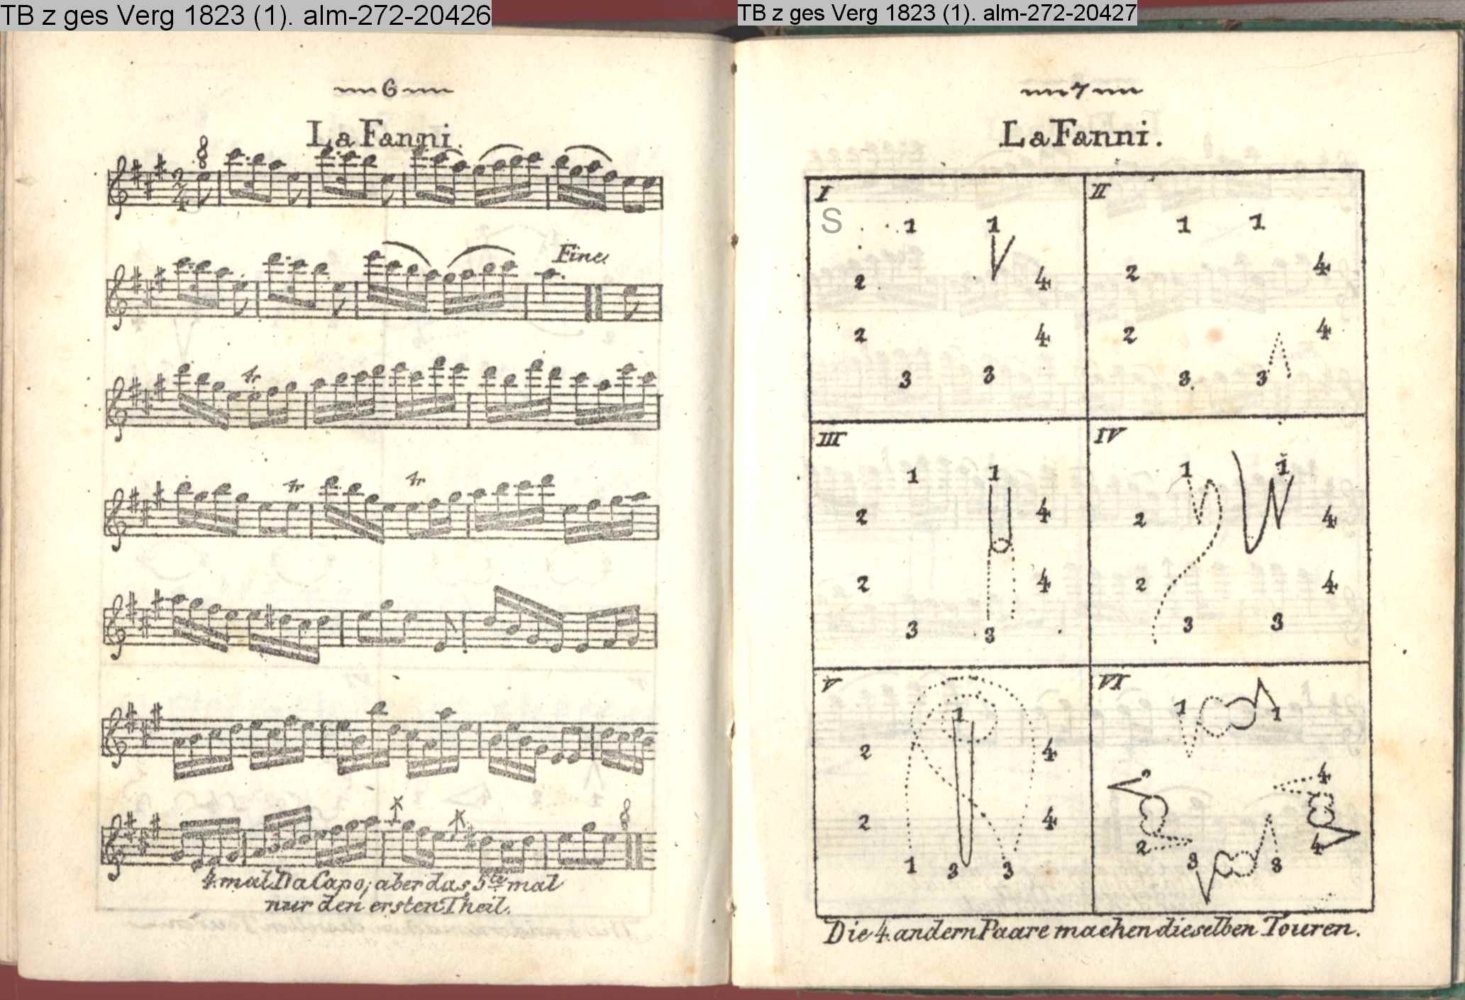 TB z ges Verg 1823 (1). alm-272-20426
6
La Fanni.
2/4
Fine.
tr
tr tr
4. mal Da Capo; aber das 5te mal
nur den ersten Theil.
TB z ges Verg 1823 (1). alm-272-20427
7
La Fanni.
I
S 1 1
2 4
2 4
3 3
II
1 1
2 4
2 4
3 3
III
1 1
2 4
2 4
3 3
IV
1 1
2 4
2 4
3 3
V
1
2 4
2 4
1 3 3
VI
1 1
2 4
2 4
3 3
Die 4. andern Paare machen dieselben Touren.